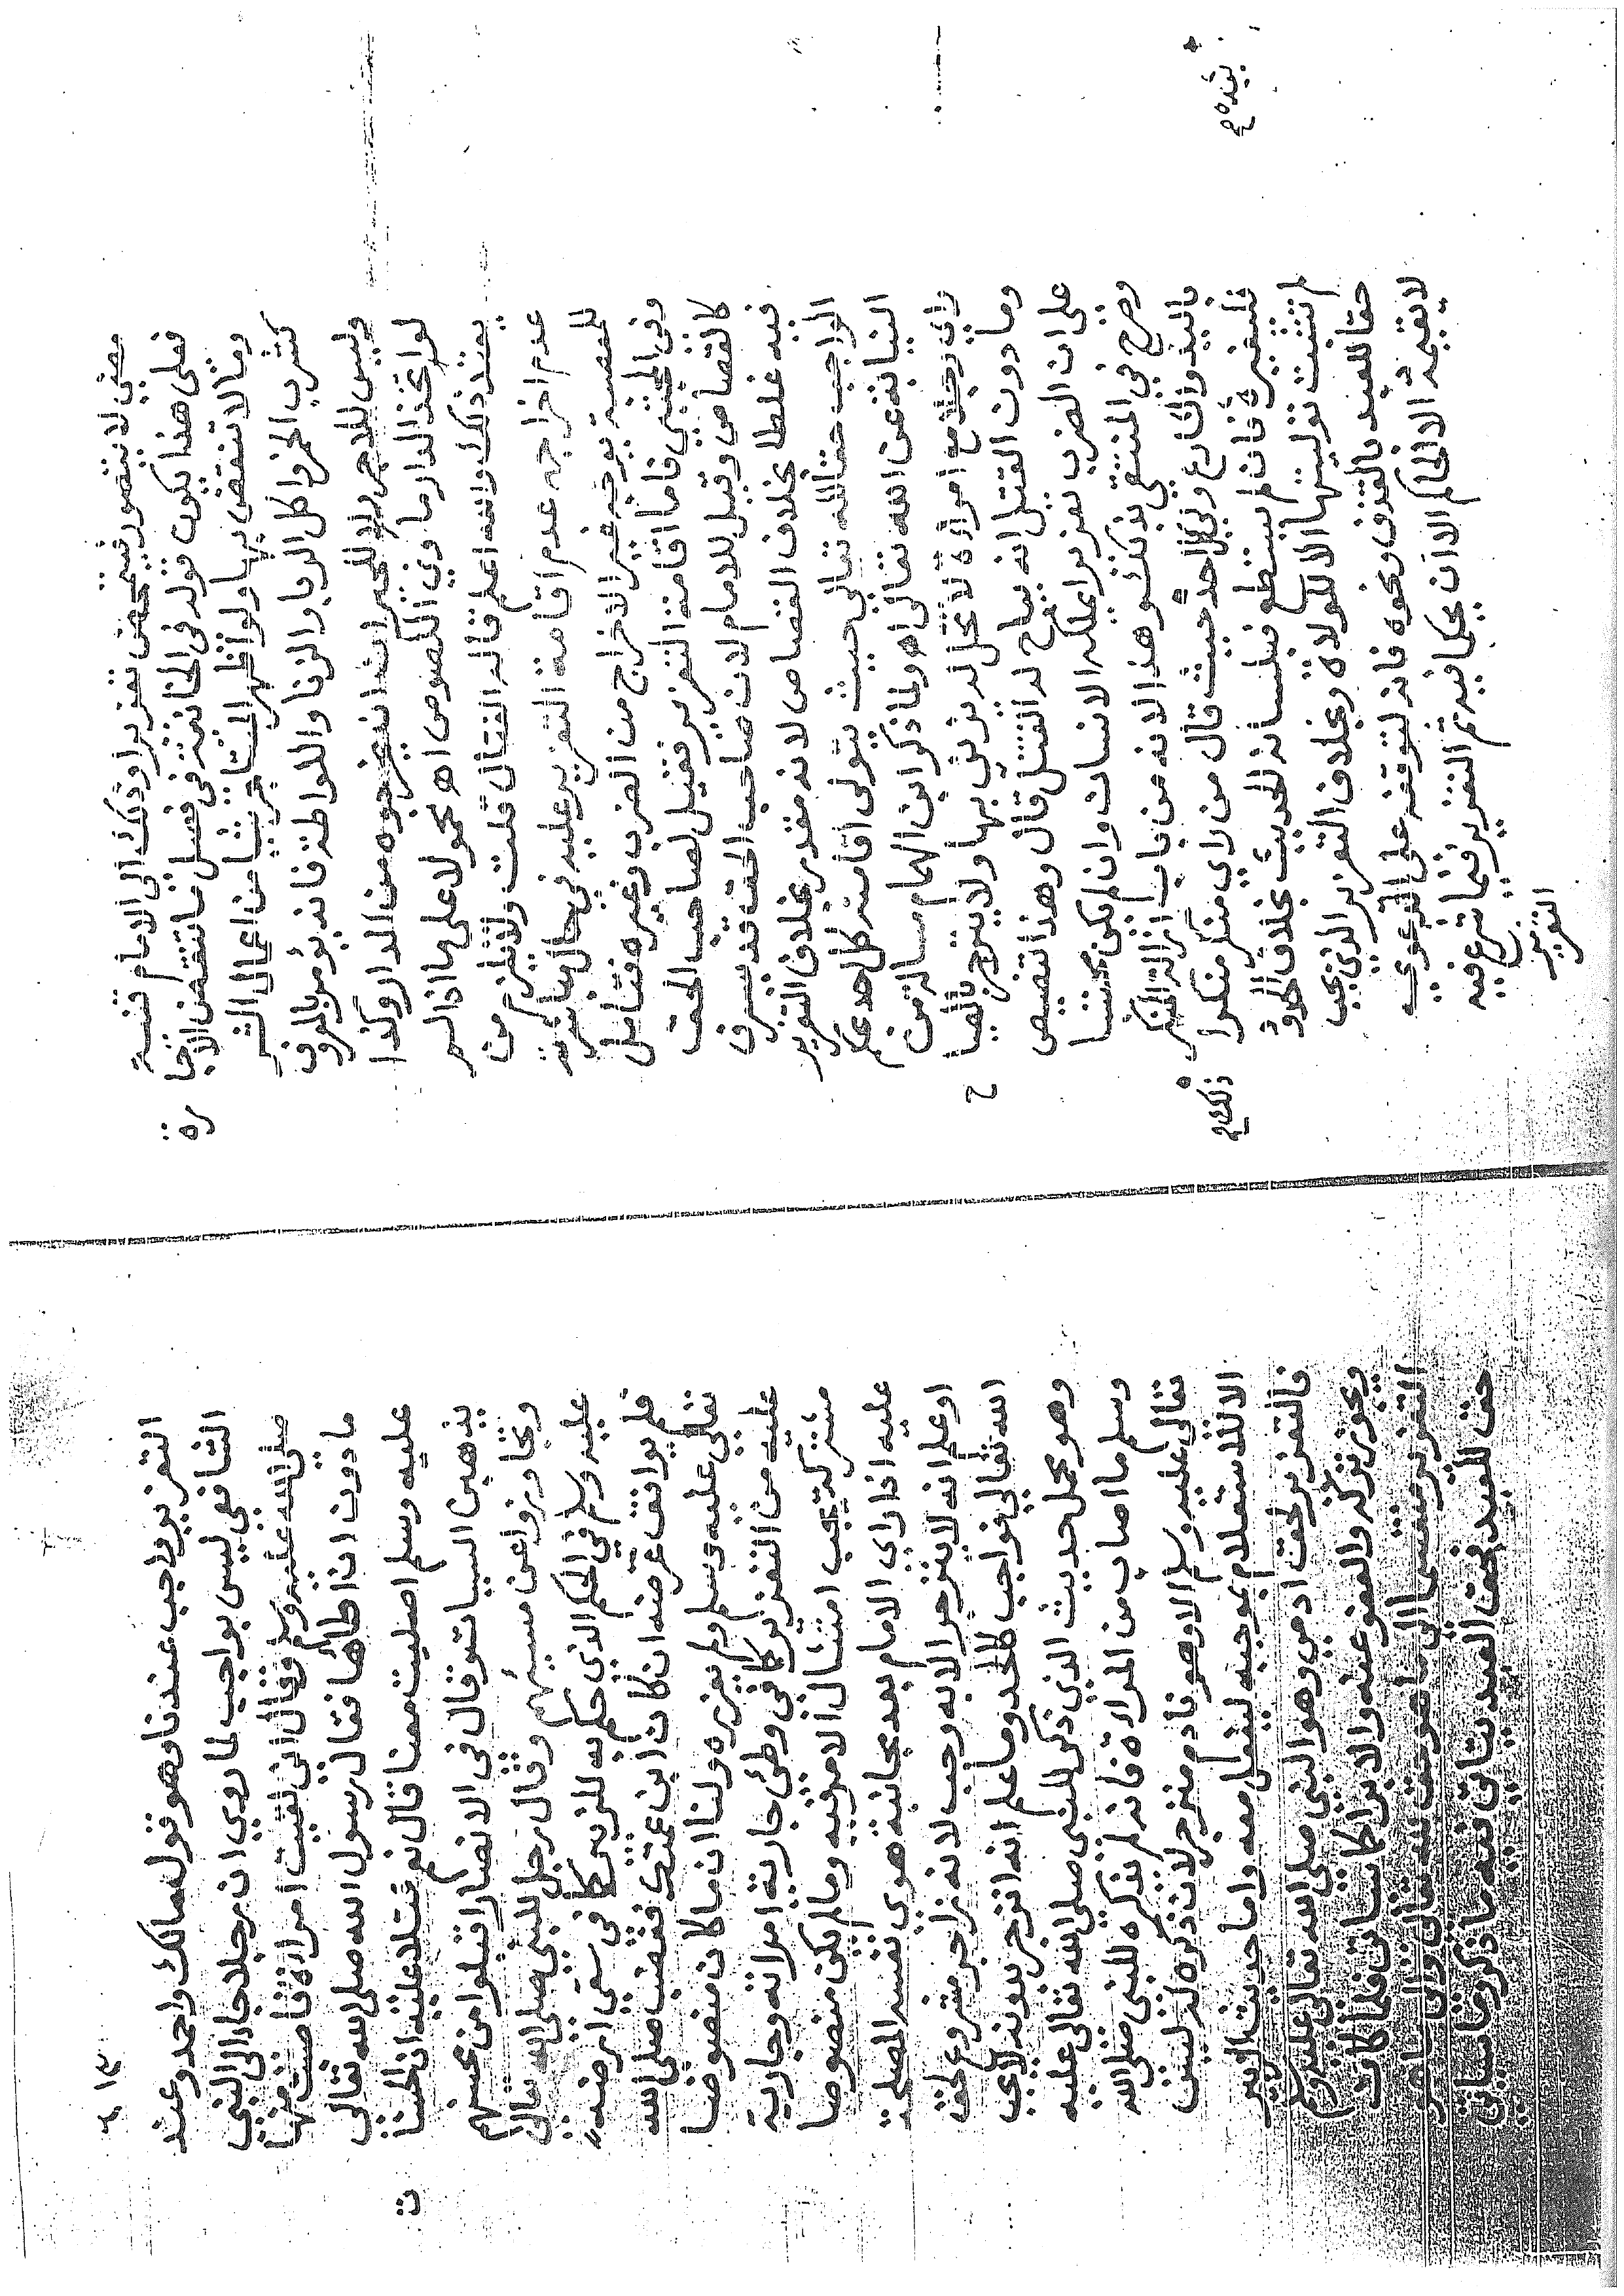 مضي لا يتصور فيتمحض تعزيرا وذلك الي الامام قنية
فعلي هذا يكون قولہ في الخانية في فصل ما تنتقض الاجا
رة
وما لا تنتقض بها ولو اظهر المستاجر شيا من اعمال الشر
كشرب الخمر واكل الربا والزنا واللواطة فانه يؤمر بالمعروف
وليس للاجر ولا للجيران ان يخرجوه من الدار وكذا
لو اتخذ الدار ماوي اللصوص اهـ محمولا علي ما اذا لم
يعتد ذلك والله اعلم قاله القتال قلت ولا يلزم من
عدم اخراجه عدم اقامة التعزير عليه في حال مباشرته
للمعصية بوجه غير الاخراج من الضرب وغيره فتامل
وفي المجتبي فاما اقامة التعزير فقيل لصاحب الحق
كالقصاص وقيل للامام لان صاحب الحق قد يسرف
فيه غلطا بخلاف القصاص لانه مقدر بخلاف التعزير
الواجب حقا لله تعالي حيث يتولي اقامته كل احد بحكم
النيابة عن الله تعالي اهـ ولما ذكر ابن الهمام مسالة من
راي رجلا مع امراة لا تحل له يزني بها ولا ينزجر بالصيا
ح
وما دون القتل انه يباح له القتل قال وهذا تنصيص
علي ان الضرب تعزيرا يملكه الانسان وان لم يكن محتسبا
وصرح في المنتقي بذلك وهذا لانه من باب ازالة المنكر
باليد والشارع ولي كل احد ذلك حيث قال من راي منكم منكرا
فليغيره بيده فان لم يستطع فبلسانه الحديث بخلاف الحدود
لم تثبت توليتها الا للولاة وبخلاف التعزير الذي يجب
حقا للعبد بالقذف ونحوه فانه لتوقفه علي الدعوي
لا يقيمه الا الحاكم الا ان يحكما فيه ثم التعزير فيما شرع فيه
التعزير
١٣
التعزير واجب عندنا وهو قول مالك واحمد وعند
الشافعي ليس بواجب لما روي ان رجلا جاء الي النبي
صلي الله عليه وسلم فقال اني لقيت امراة فاصبت منها
ما دون ان اطأها فقال رسول الله صلي الله تعالي
عليه وسلم اصليت معنا قال نعم فتلا عليه ان الحسنا
ت
يذهبن السيات وقال في الانصار اقبلوا من محسنهم
وتجاوزوا عن مسيئهم وقال رجل للنبي صلي الله تعالي
عليه وسلم في الحكم الذي حكم به للزبير في سقي ارضه
فلم يوافق غرضه ان كان ابن عمتك فغضب صلي الله
تعالي عليه وسلم ولم يعزره ولنا ان ما كان منصوصا
عليه من التعزير كما في وطئ جارية امراته وجارية
مشتركة يجب امتثال الامر فيه وما لم يكن منصوصا
عليه اذا راي الامام بعد مجانبة هوي نفسه المصلحة
او علم انه لا ينزجر الا به وجب لانه زاجر مشروع لحق
الله تعالي فواجب كالحد وما علم انه انزجر بدونه لا يجب
وهو محمل حديث الذي ذكر للنبي صلي الله تعالي عليه
وسلم ما اصاب من المراة فانه لم يذكره للنبي صلي الله
تعالي عليه وسلم الا وهو نادم منزجر لان ذكره له ليس
الا للاستعلام بموجبه ليفعل معه واما حديث الزبير
فالتعزير لحق ادمي وهو النبي صلي الله تعالي عليه وسلم
ويجوز تركه والعفو عنه والابراء
التعزير ينقسم الي ما هو حق لله تعالي والي ما هو
حق للعبد فحق العبد يتاتي فيه ما ذكر